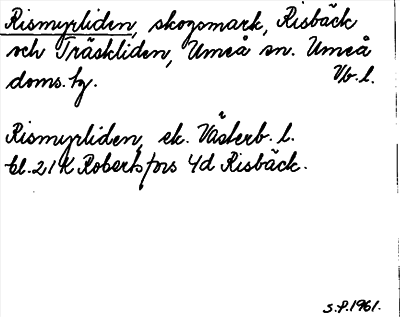 Rismyrliden, skogsmark, Risbäck
och Träskliden, Umeå sn. Umeå
doms. hg. Vb. l.
Rismyrliden, ek. Västerb. l.
bl. 21 K Robertsfors 4d Risbäck.
S.P. 1961.